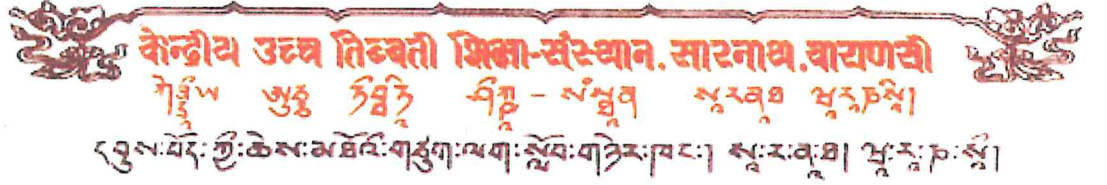 केन्द्रीय उच्च तिब्बती शिक्षा-संस्थान, सारनाथ, वाराणसी
ཀེནྡྲཱིཡ ཨུཙྩ ཏིབྦཏཱི ཤིཀྵཱ - སཾསྠཱན སཱརནཱཐ ཝཱརཱཎསཱི།
དབུས་བོད་ཀྱི་ཆེས་མཐོའི་གཙུག་ལག་སློབ་གཉེར་ཁང་། སཱ་ར་ནཱ་ཐ། ཝཱ་རཱ་ཎ་སཱི།